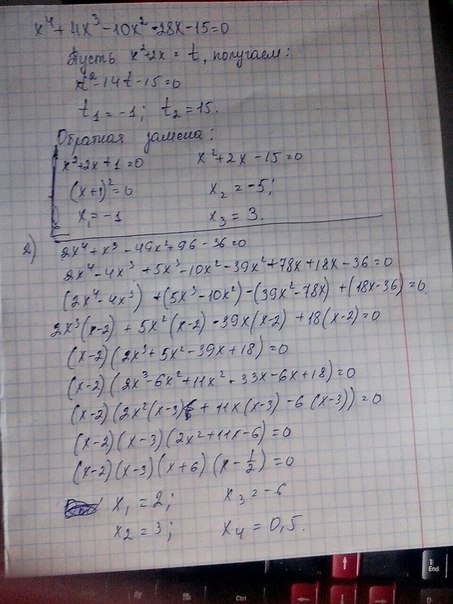 x⁴ + 4x³ - 10x² - 28x - 15 = 0
Пусть x²+2x = t, получаем:
t² - 14t - 15 = 0
t₁ = -1; t₂ = 15.
Обратная замена:
x²+2x+1=0 x²+2x-15=0
(x+1)²=0 x₂ = -5;
x₁ = -1 x₃ = 3.
2) 2x⁴ + x³ - 49x² + 96 - 36 = 0
2x⁴ - 4x³ + 5x³ - 10x² - 39x² + 78x + 18x - 36 = 0
(2x⁴ - 4x³) + (5x³ - 10x²) - (39x² - 78x) + (18x - 36) = 0
2x³(x-2) + 5x²(x-2) - 39x(x-2) + 18(x-2) = 0
(x-2)(2x³ + 5x² - 39x + 18) = 0
(x-2)(2x³ - 6x² + 11x² - 33x - 6x + 18) = 0
(x-2)(2x²(x-3) + 11x(x-3) - 6(x-3)) = 0
(x-2)(x-3)(2x² + 11x - 6) = 0
(x-2)(x-3)(x+6)(x - 1/2) = 0
x₁ = 2; x₃ = -6
x₂ = 3; x₄ = 0,5.
1
End
Ctrl